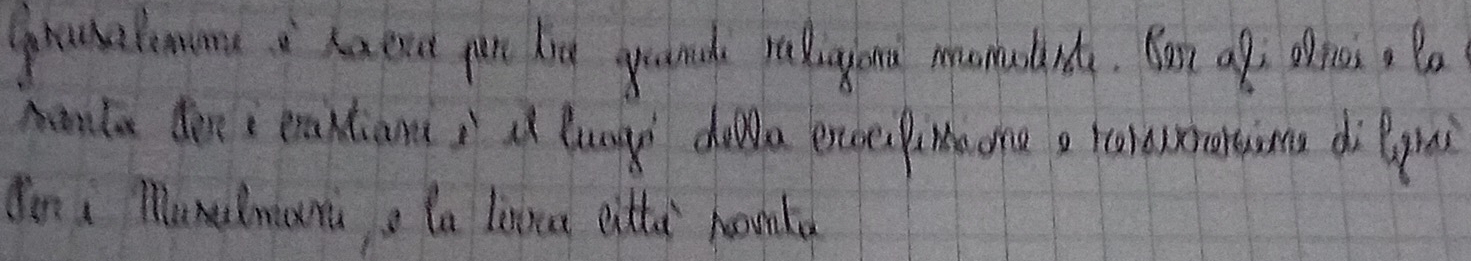 Gerusalemme è sacra per tre grandi religioni monoteiste. Per gli ebrei è la
santa Per i cristiani è il luogo della crocifissione e resurrezione di Gesù
Per i Musulmani, è la terza città santa